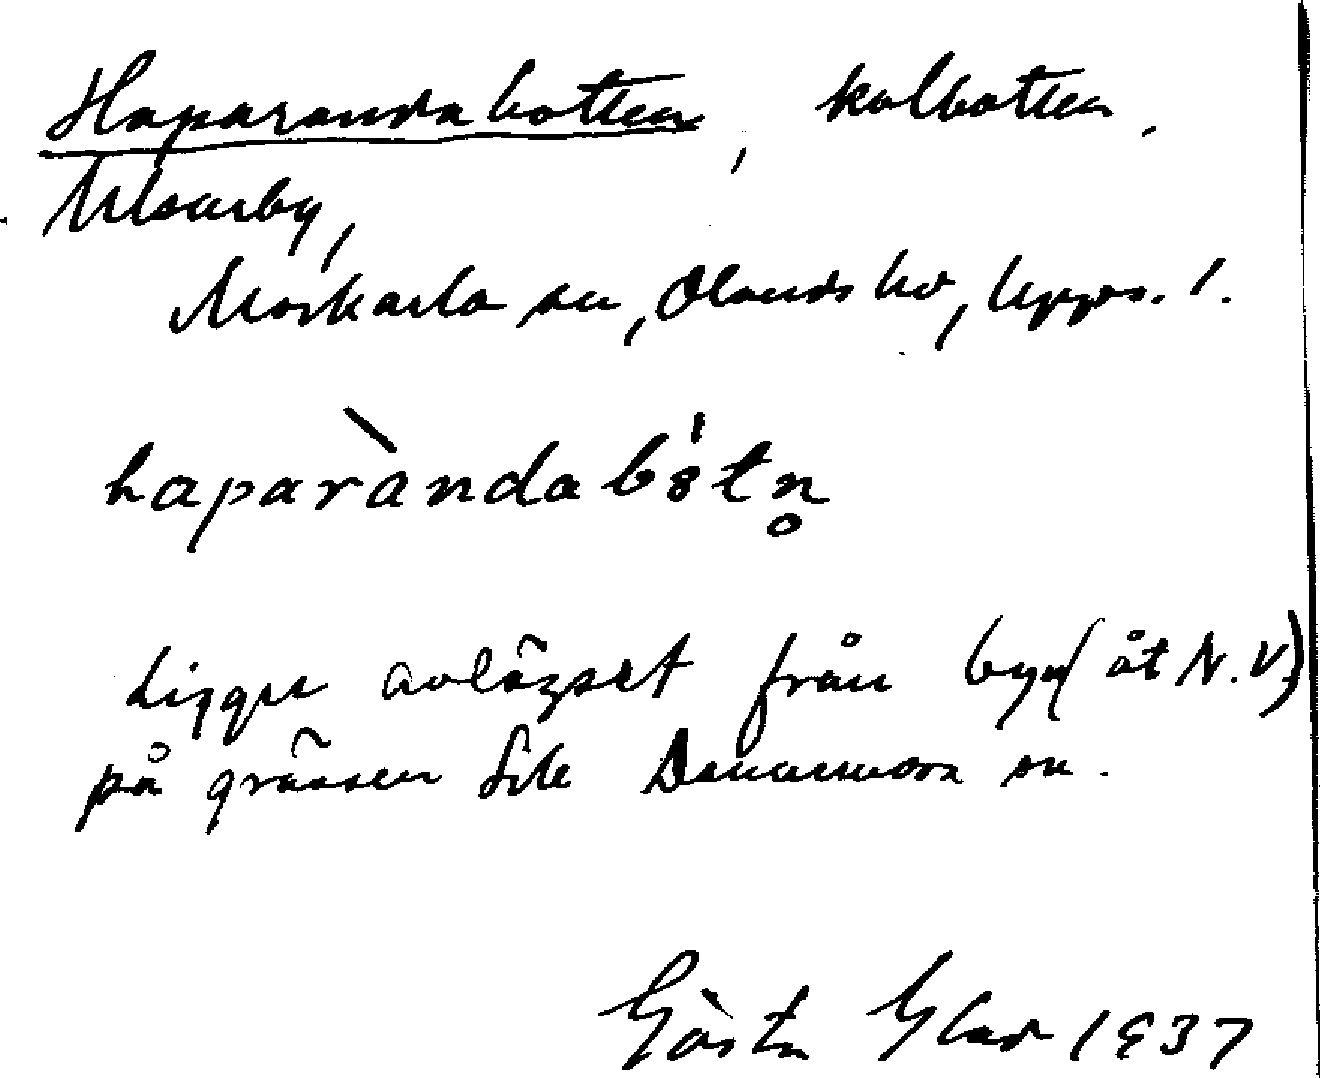 Haparandabotten, kolbotten.
Ulvarby,
Morkarla sn, Olands hd, Upps. l.
haparàndabòtn̥
Ligger avlägset från byn (åt N.V.)
på gränsen till Dannemora sn.
Gösta Glad 1937